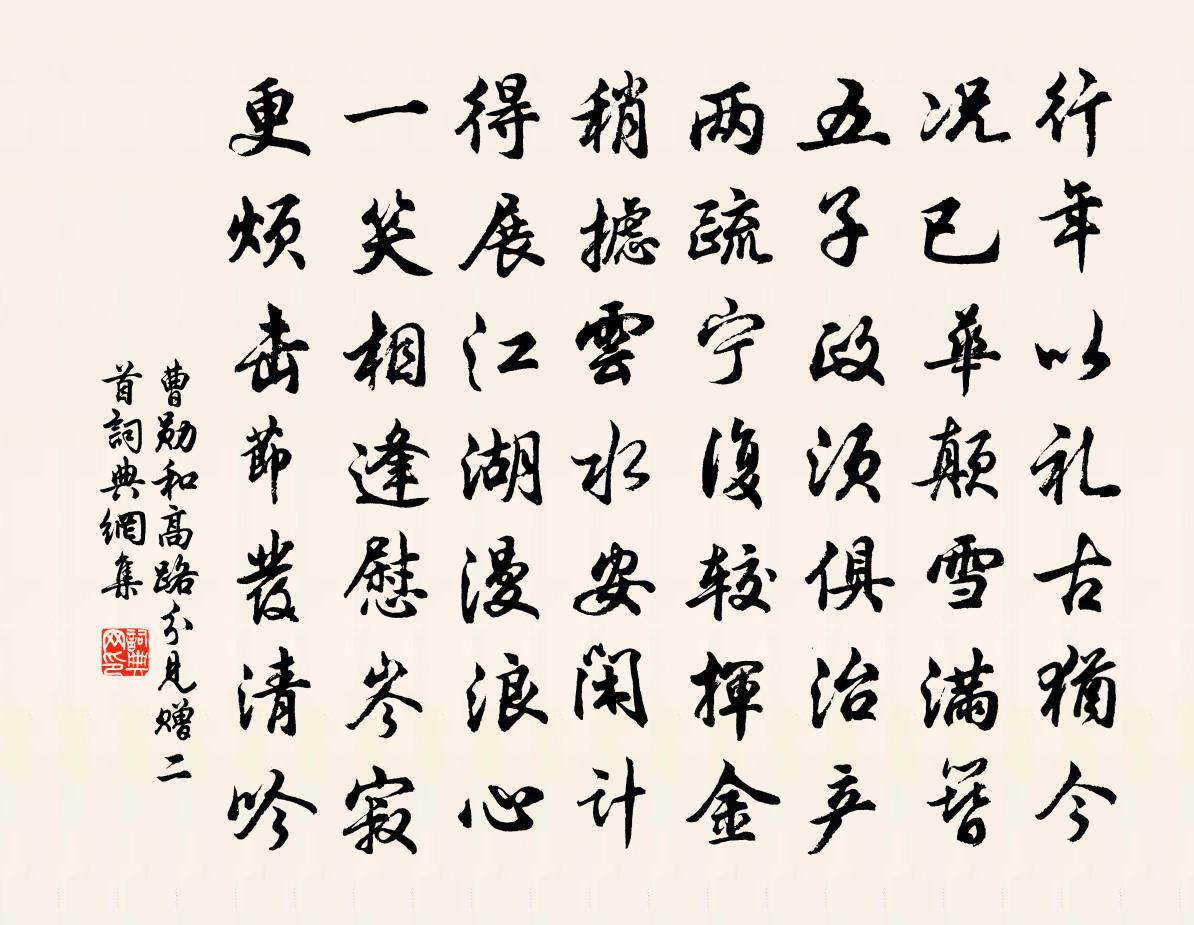 行年以礼古猶今
况已華颠雪满簪
五子政须俱治产
两疏宁復较揮金
稍摅雲水安闲计
得展江湖漫浪心
一笑相逢慰岑寂
更烦击節發清吟
曹勋和高路分見赠二
首詞典網集
詞典
网印